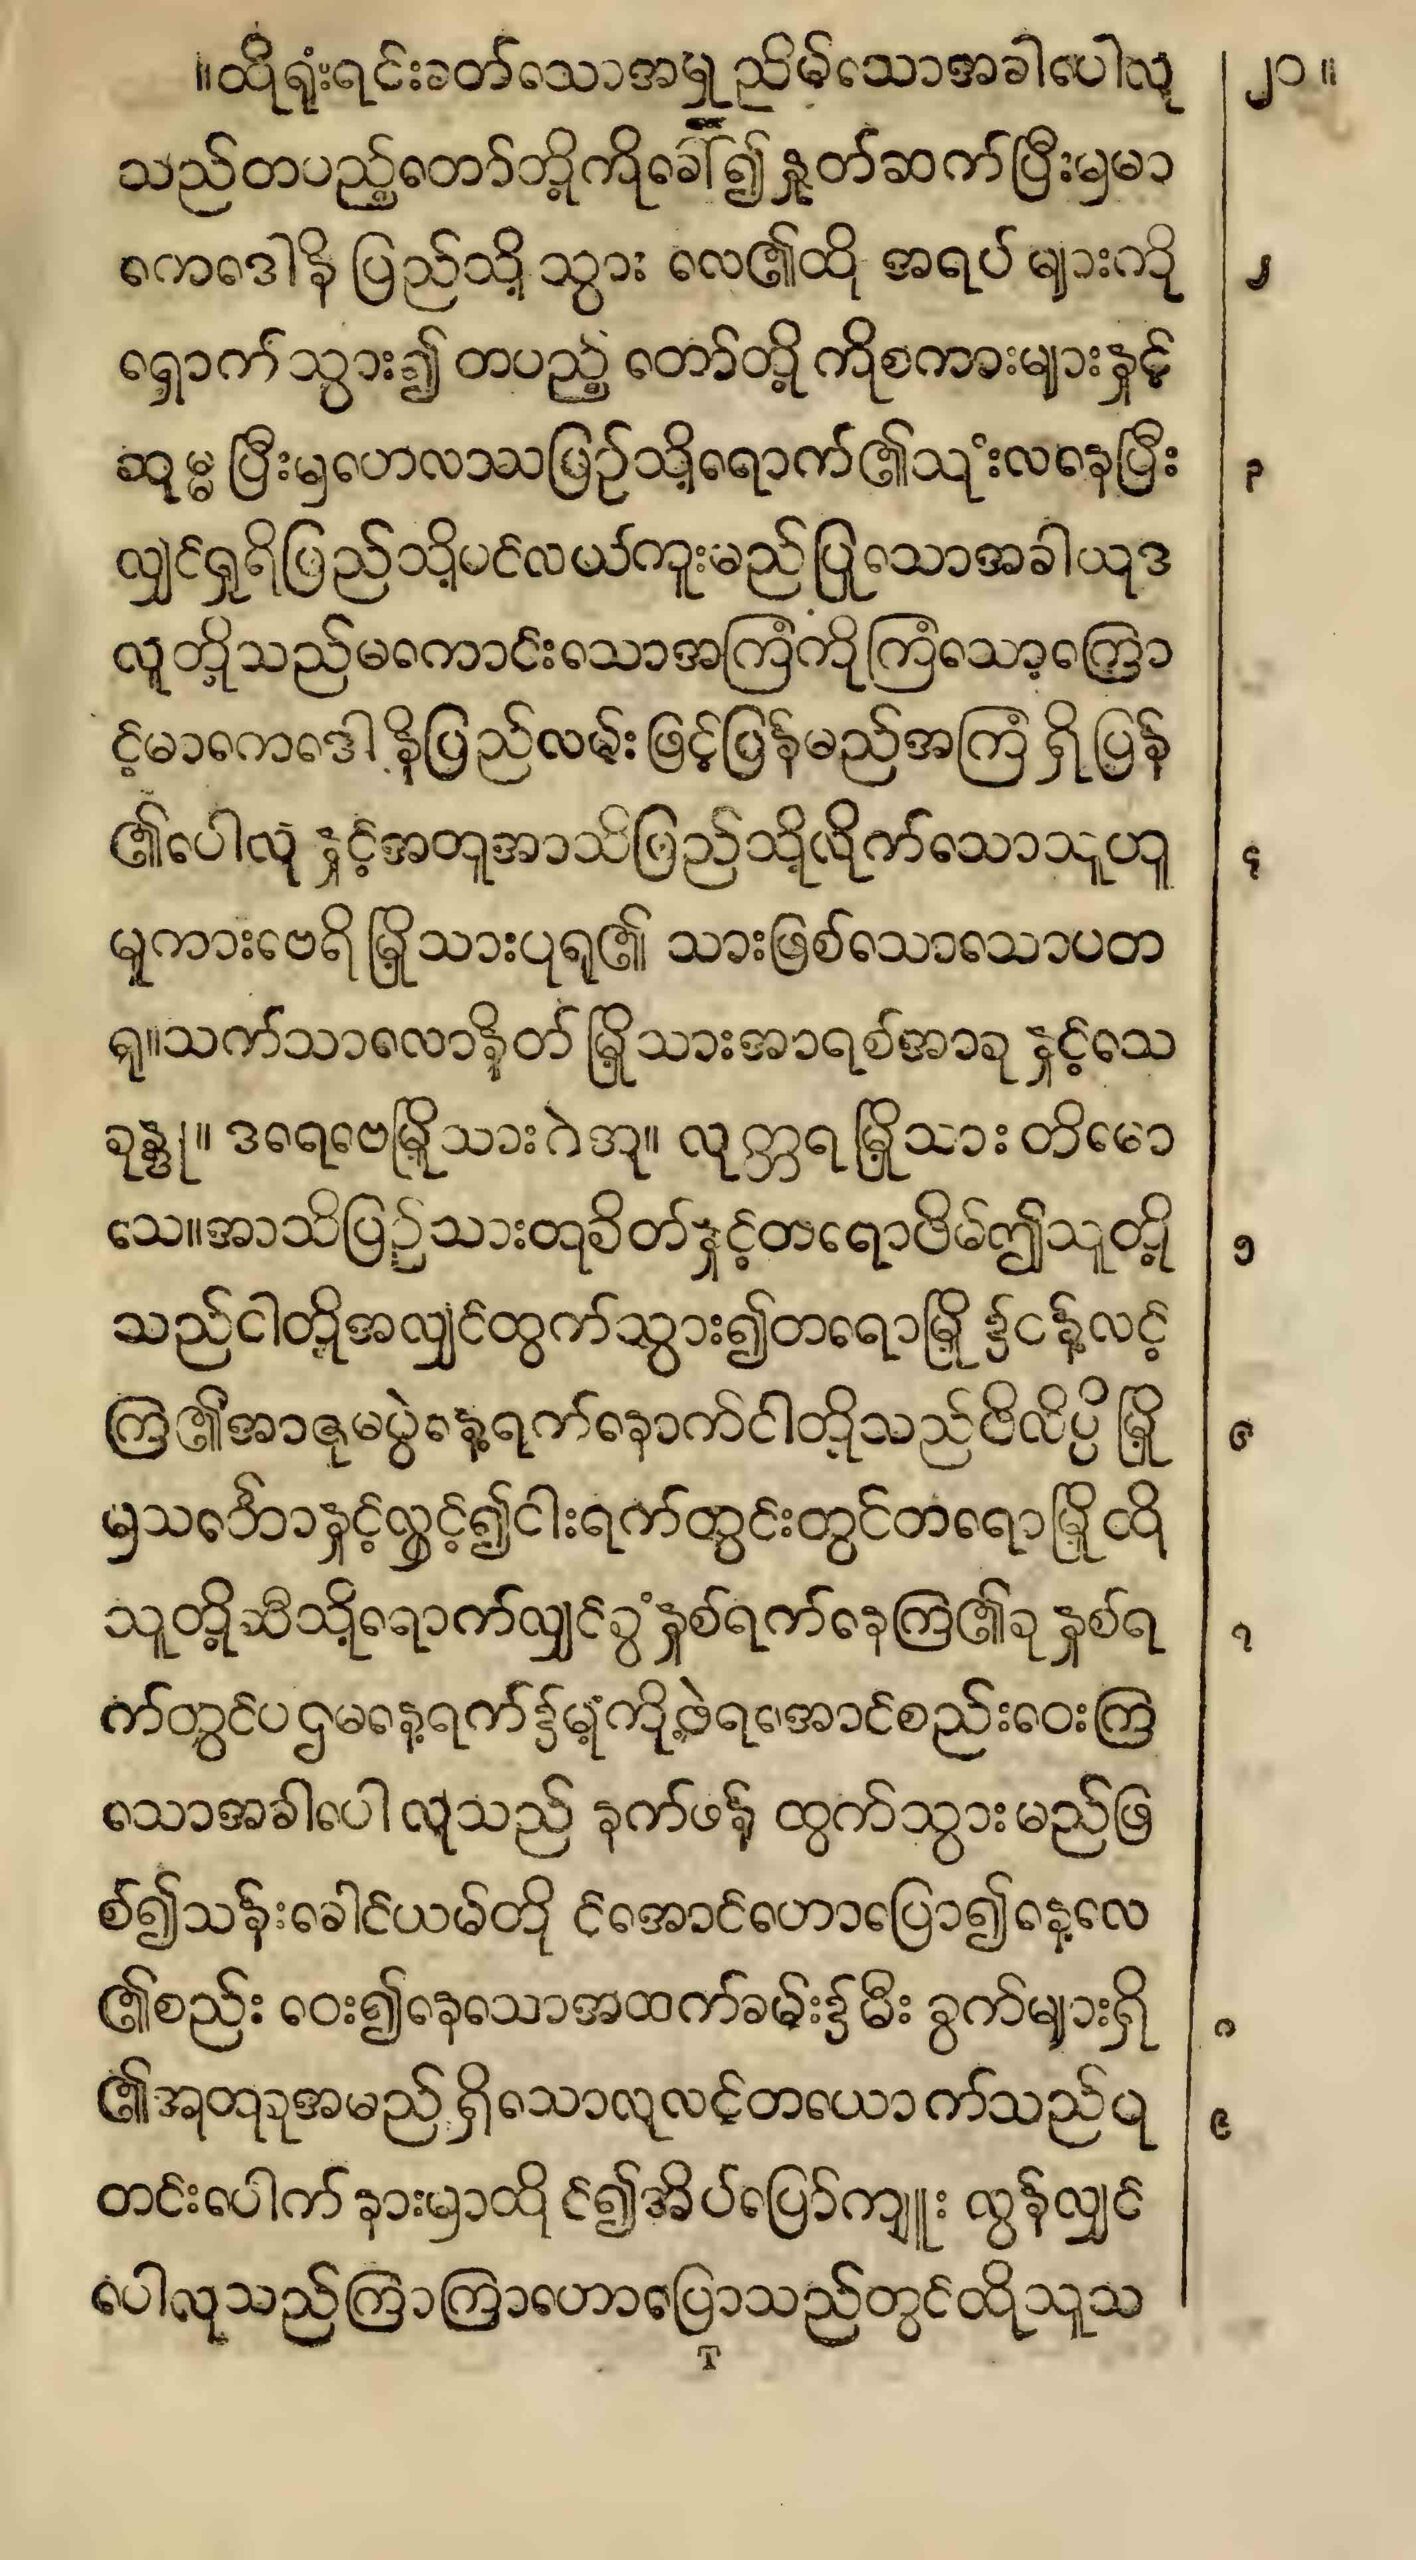 ။ထိုရုံးရင်းခတ်သောအမှု ညိမ်သောအခါပေါလု ၂၀။
သည်တပည့်တော်တို့ကိုခေါ်၍ နှုတ်ဆက်ပြီးမှမာ
ကေဒေါနိ ပြည်သို့ သွား လေ၏ထို အရပ် များကို ၂
ရှောက် သွား၍ တပည့် တော်တို့ ကိုစကားများနှင့်
ဆုမ္မ ပြီးမှဟေလာသပြဉ်သို့ရောက်၏သုံးလနေပြီး ၃
လျှင်ရှုရိပြည်သို့ပင်လယ်ကူးမည်ပြုသောအခါယုဒ
လူတို့သည်မကောင်းသောအကြံကိုကြံသော့ကြော
င့်မာကေဒေါနိပြည်လမ်းဖြင့်ပြန်မည်အကြံ ရှိ ပြန်
၏ပေါလု နှင့်အတူအာသိပြည်သို့လိုက်သောသူဟူ ၄
မူကားဗေရိ မြို့သားပုရု၏ သားဖြစ်သောသောပတ
ရု။သက်သာလောနိတ် မြို့သားအာရစ်အာခု နှင့်သေ
ခုန္ဒု။ ဒရေဗေမြို့သားဂဲအု။ လုတ္တရ မြို့သား တိမော
သေ။အာသိပြဉ်သားတုခိတ်နှင့်တရောဖိမ်ဤသူတို့ ၅
သည်ငါတို့အလျှင်ထွက်သွား၍တရောမြို့၌ငန့်လင့်
ကြ၏အာဇုမပွဲနေ့ရက်နောက်ငါတို့သည်ဖိလိပ္ပိ မြို့ ၆
မှသင်္ဘောနှင့်လွှင့်၍ငါးရက်တွင်းတွင်တရောမြို့ထို
သူတို့ဆီသို့ရောက်လျှင်ခွန်နှစ်ရက်နေကြ၏ခုနှစ်ရ ၇
က်တွင်ပဌမနေ့ရက်၌မုံ့ကို့ဖဲ့ရအောင်စည်းဝေးကြ
သောအခါပေါ လုသည် နက်ဖန် ထွက်သွား မည်ဖြ
စ်၍သန်းခေါင်ယမ်တို င်အောင်ဟောပြော၍နေ့လေ
၏စည်း ဝေး၍နေသောအထက်ခမ်း၌ မီး ခွက်များရှိ ၈
၏အုတုခုအမည် ရှိသောလုလင့်တယောက်သည်ပြု ၉
တင်းပေါက် နားမှာထိုင်၍အိပ်ပြော်ကျူး လွန်လျှင်
ပေါလုသည်ကြာကြာဟောပြောသည်တွင်ထိုသူသ
T